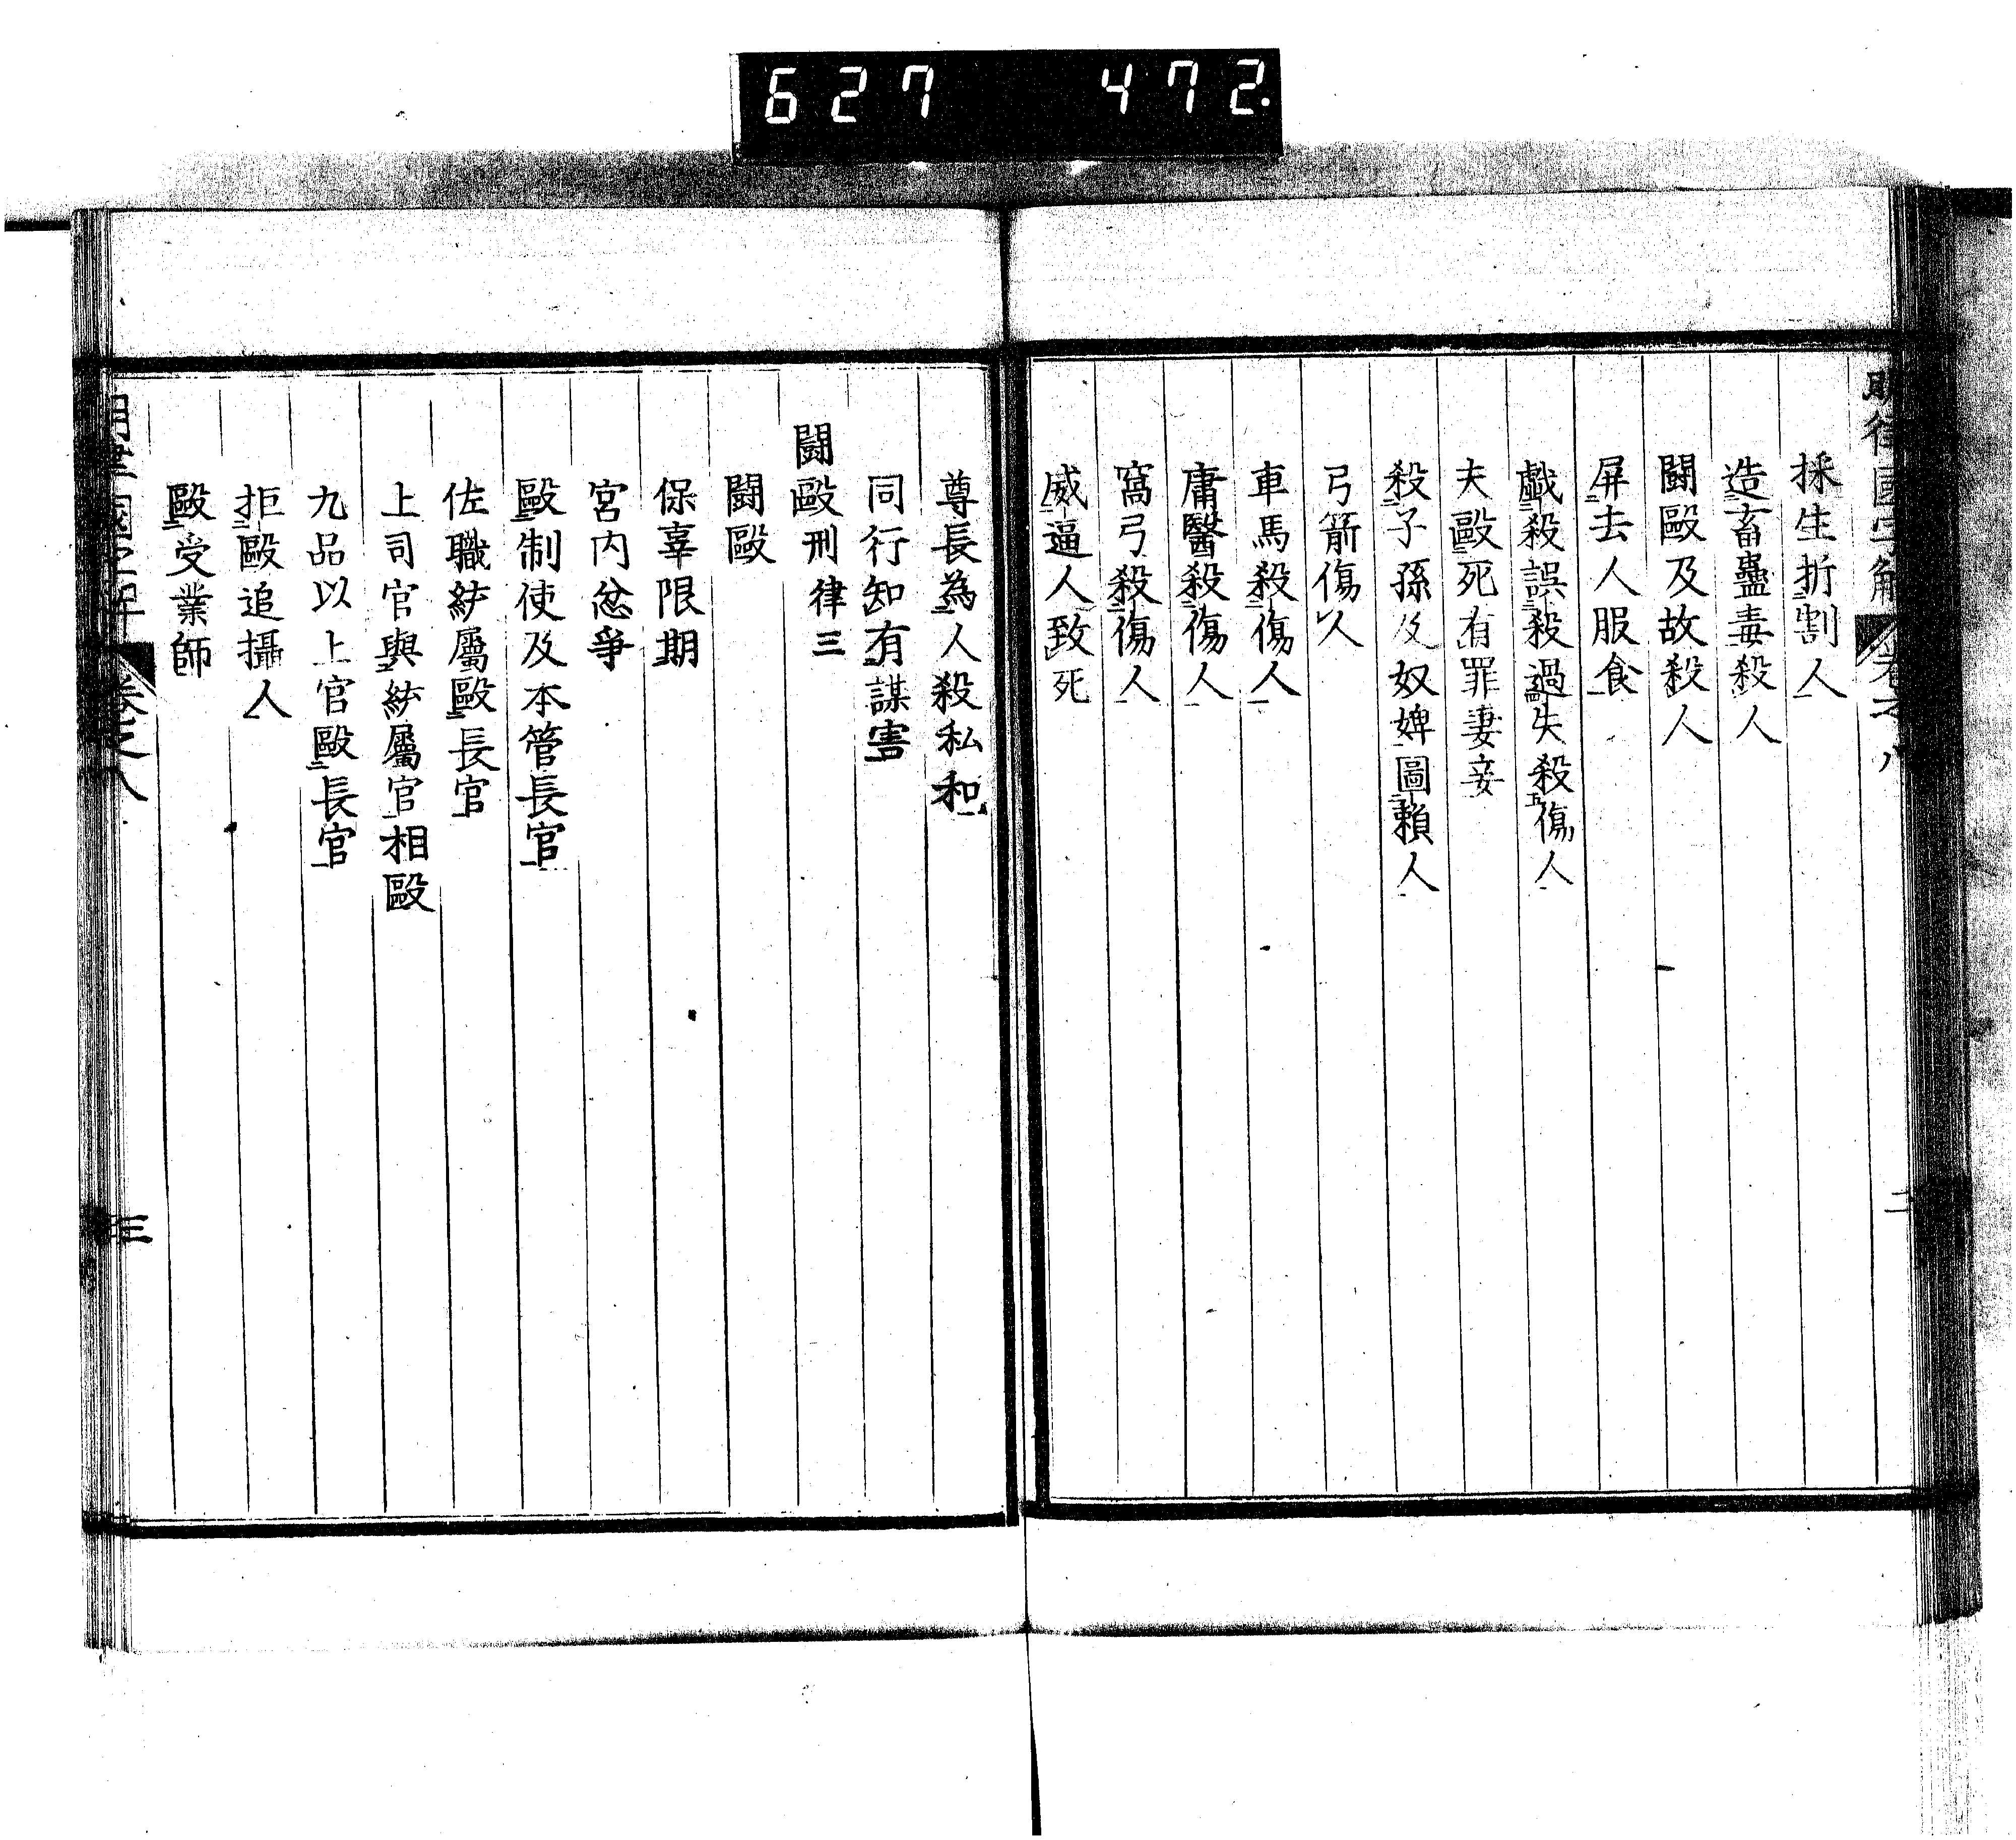 627 472
明律國字解 卷之八 二
採生折割人
造畜蠱毒殺人
鬪毆及故殺人
屏去人服食
戲殺誤殺過失殺傷人
夫毆死有罪妻妾
殺子孫及奴婢圖賴人
弓箭傷人
車馬殺傷人
庸醫殺傷人
窩弓殺傷人
威逼人致死
尊長為人殺私和
同行知有謀害
鬪毆刑律三
鬪毆
保辜限期
宮内忿爭
毆制使及本管長官
佐職統屬毆長官
上司官與統屬官相毆
九品以上官毆長官
拒毆追攝人
毆受業師
明律國字解 卷之八 三